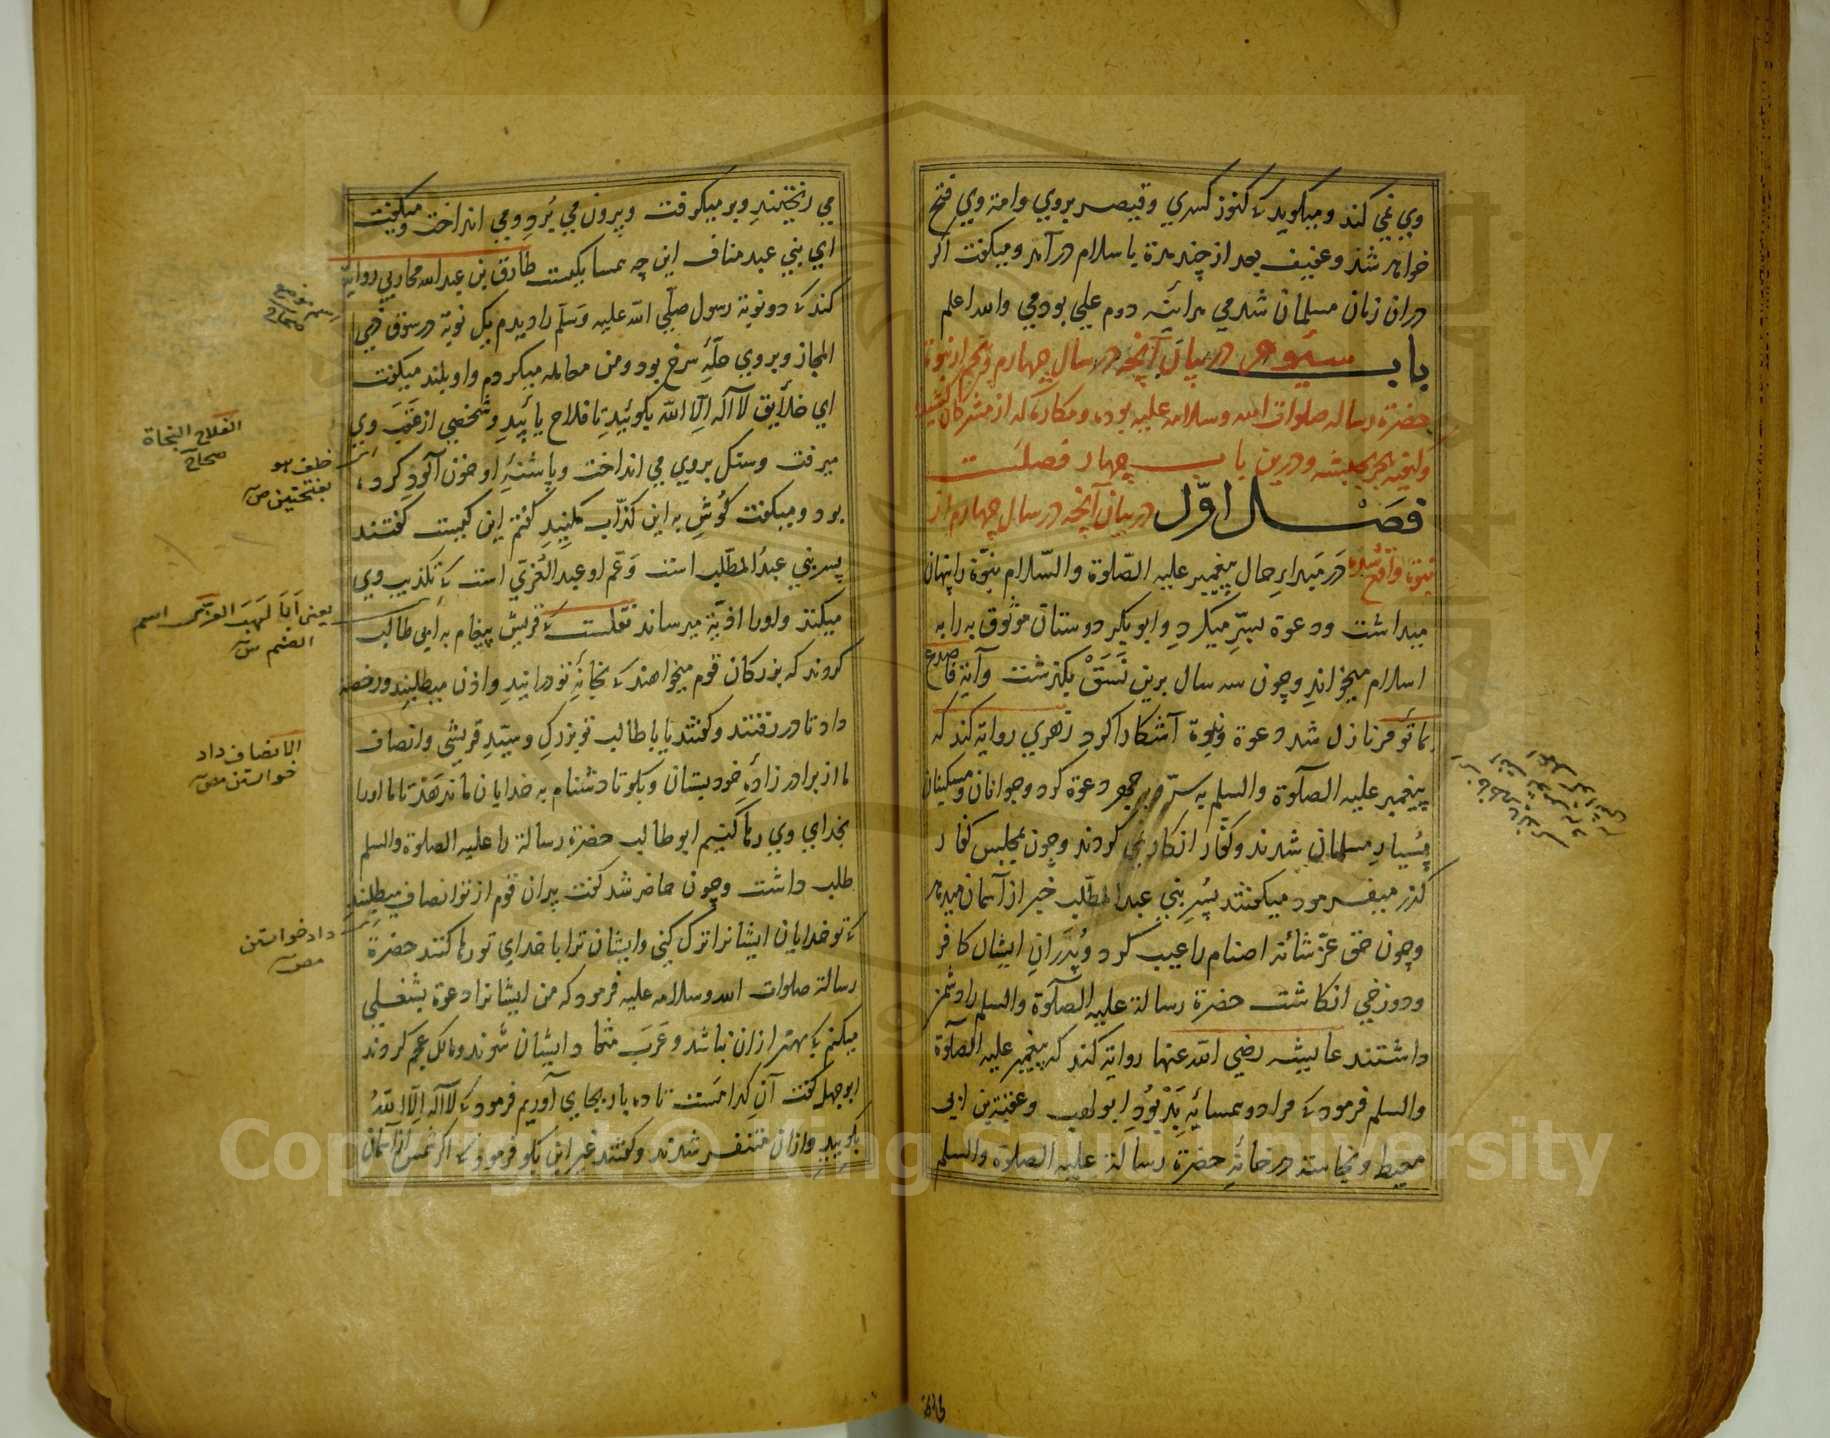 وي نمي كند وميكويد كه كنوز كسري وقيصر بروي وامة وي فتح
خواهد شد وعفيف بعد از چند مدة باسلام در آمد وميكفت اكر
دران زمان مسلمان شدمي هرآئينه دوم علي بودمي والله اعلم
باب سيوم در بيان آنچه در سال چهارم وپنجم از نبوة
حضرة رسالة صلوات الله وسلامه عليه بوده ومكاره كه از مشركان كشيده
ودرين باب چهار فصلست
فصل اول در بيان آنچه در سال چهارم از
نبوة واقع شده در مبداء حال پيغمبر عليه الصلوة والسلام نبوة را پنهان
ميداشت ودعوة بسر ميكرد وابو بكر دوستان موثوق به را به
اسلام ميخواند وچون سه سال برين نسق بكذشت وآية فاصدع
بما تؤمر نازل شد دعوة نبوة آشكارا كرد زهري رواية كند كه
پيغمبر عليه الصلوة والسلم به سر وجهر دعوة كرد وجوانان ومسكينان
بسيار مسلمان شدند وكفار انكار مي كردند وچون بمجلس كفار
كذر ميفرمود ميكفتند پسر بني عبد المطلب خبر از آسمان ميدهد
وچون حق عز شانه اصنام را عيب كرد وپدران ايشان كافر
ودوزخي انكاشت حضرة رسالة عليه الصلوة والسلم را دشمن
داشتند عايشه رضي الله عنها رواية كند كه پيغمبر عليه الصلوة
والسلم فرمود كه مرا دو همسائه بد بود ابو لهب وعقبة بن ابي
معيط ونجاستها در خانه حضرة رسالة عليه الصلوة والسلم
مي ريختند وبر ميكرفت وبيرون مي برد ومي انداخت وميكفت
اي بني عبد مناف اين چه همسايكيست طارق بن عبد الله محاربي رواية
كند كه دو نوبة رسول صلي الله عليه وسلم را ديدم يك نوبة در سوق ذي
المجاز وبروي حله سرخ بود ومن معامله ميكردم واو بلند ميكفت
اي خلايق لا اله الا الله بكوئيد تا فلاح يابيد وشخصي از عقب وي
ميرفت وسنك بروي مي انداخت وپاشنه او خون آلود كرده
بود وميكفت كوش به اين كذاب مكنيد كفتم اين كيست كفتند
پسر بني عبد المطلب است وعم او عبد العزي است كه تكذيب وي
ميكند واورا اذية ميرساند نقلست كه قريش پيغام به ابي طالب
كردند كه بزركان قوم ميخواهند كه بخانه تو در آيند واذن ميطلبند ورخصة
داد تا در رفتند وكفتند يا با طالب تو بزرك وسيد قريشي وانصاف
ما از برادر زاده خود بستان وبكو تا دشنام به خدايان ما ندهد تا ما اورا
بخداي وي رها كنيم ابو طالب حضرة رسالة را عليه الصلوة والسلم
طلب داشت وچون حاضر شد كفت پيران قوم از تو انصاف ميطلبند
كه تو خدايان ايشانرا ترك كني وايشان ترا با خداي تو رها كنند حضرة
رسالة صلوات الله وسلامه عليه فرمود كه من ايشانرا دعوة بشغلي
ميكنم كه بهتر ازان نباشد وعرب منقاد ايشان شوند ومالك عجم كردند
ابو جهل كفت آن كدامست تا ده بار بجاي آوريم فرمود كه لا اله الا الله
بكوييد وازان متنفر شدند وكفتند غير اين بكو فرمود كه اكر شمس از آسمان
الفلاح النجاة
صحاح
خلف هو
بفتحتين ص
يعني ابا لهب العزي اسم
الصنم
الانصاف داد
خواستن ص
داد خواستن
مص